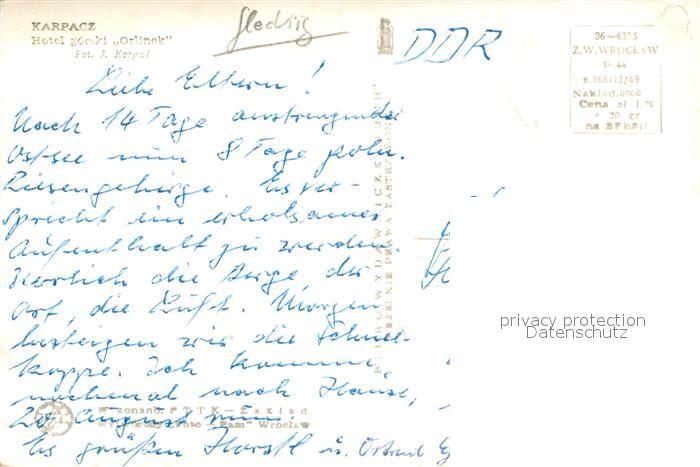 KARPACZ
Hotel górski „Orlinek"
Fot. J. Korpal
DDR
36-4335
Z.W. WROCŁAW
P-44
z. 266/II/69
Nakład.6000
Cena zł 1,70
+ 20 gr
na BFBSiI
Liebe Eltern!
Nach 14 Tage anstrengender
Ostsee nun 8 Tage poln.
Riesengebirge. Es ver-
spricht ein erholsamer
Aufenthalt zu werden.
Herrlich die Berge der
Ort, die Luft. Morgen
besteigen wir die Schnee-
koppe. Ich komme
nochmal nach Hause,
20. August
Es grüßen Horstl u. Ortrud
BIURO WYDAWNICZE „RUCH"
WSZELKIE PRAWA ZASTRZEŻONE
Wykonano, PTTK - Zakład
Wrocław
privacy protection
Datenschutz